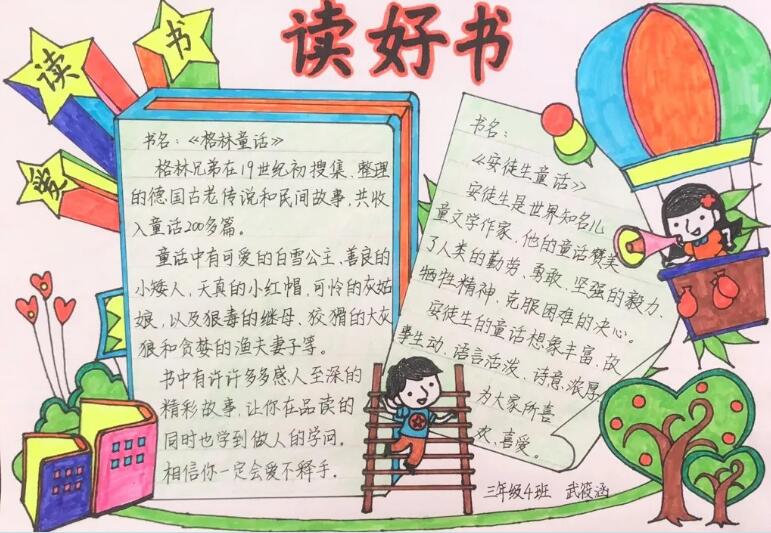 读好书
读
书
爱
书名：《格林童话》
格林兄弟在19世纪初搜集、整理
的德国古老传说和民间故事，共收
入童话200多篇。
童话中有可爱的白雪公主、善良的
小矮人，天真的小红帽，可怜的灰姑
娘，以及狠毒的继母、狡猾的大灰
狼和贪婪的渔夫妻子等。
书中有许许多多感人至深的
精彩故事，让你在品读的
同时也学到做人的学问。
相信你一定会爱不释手。
书名：
《安徒生童话》
安徒生是世界知名儿
童文学作家，他的童话赞美
了人类的勤劳、勇敢、坚强的毅力、
牺牲精神，克服困难的决心。
安徒生的童话想象丰富，故
事生动，语言活泼，诗意浓厚，
为大家所喜
欢、喜爱。
三年级4班 武筱涵